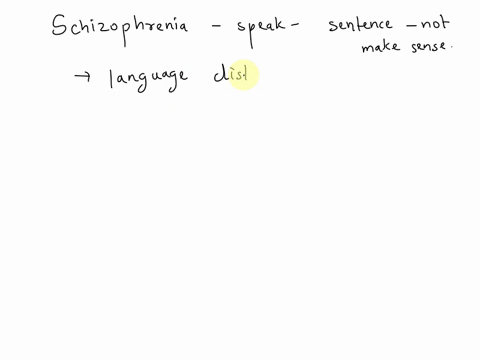 Schizophrenia - speak - sentence - not
make sense.
→ language dist